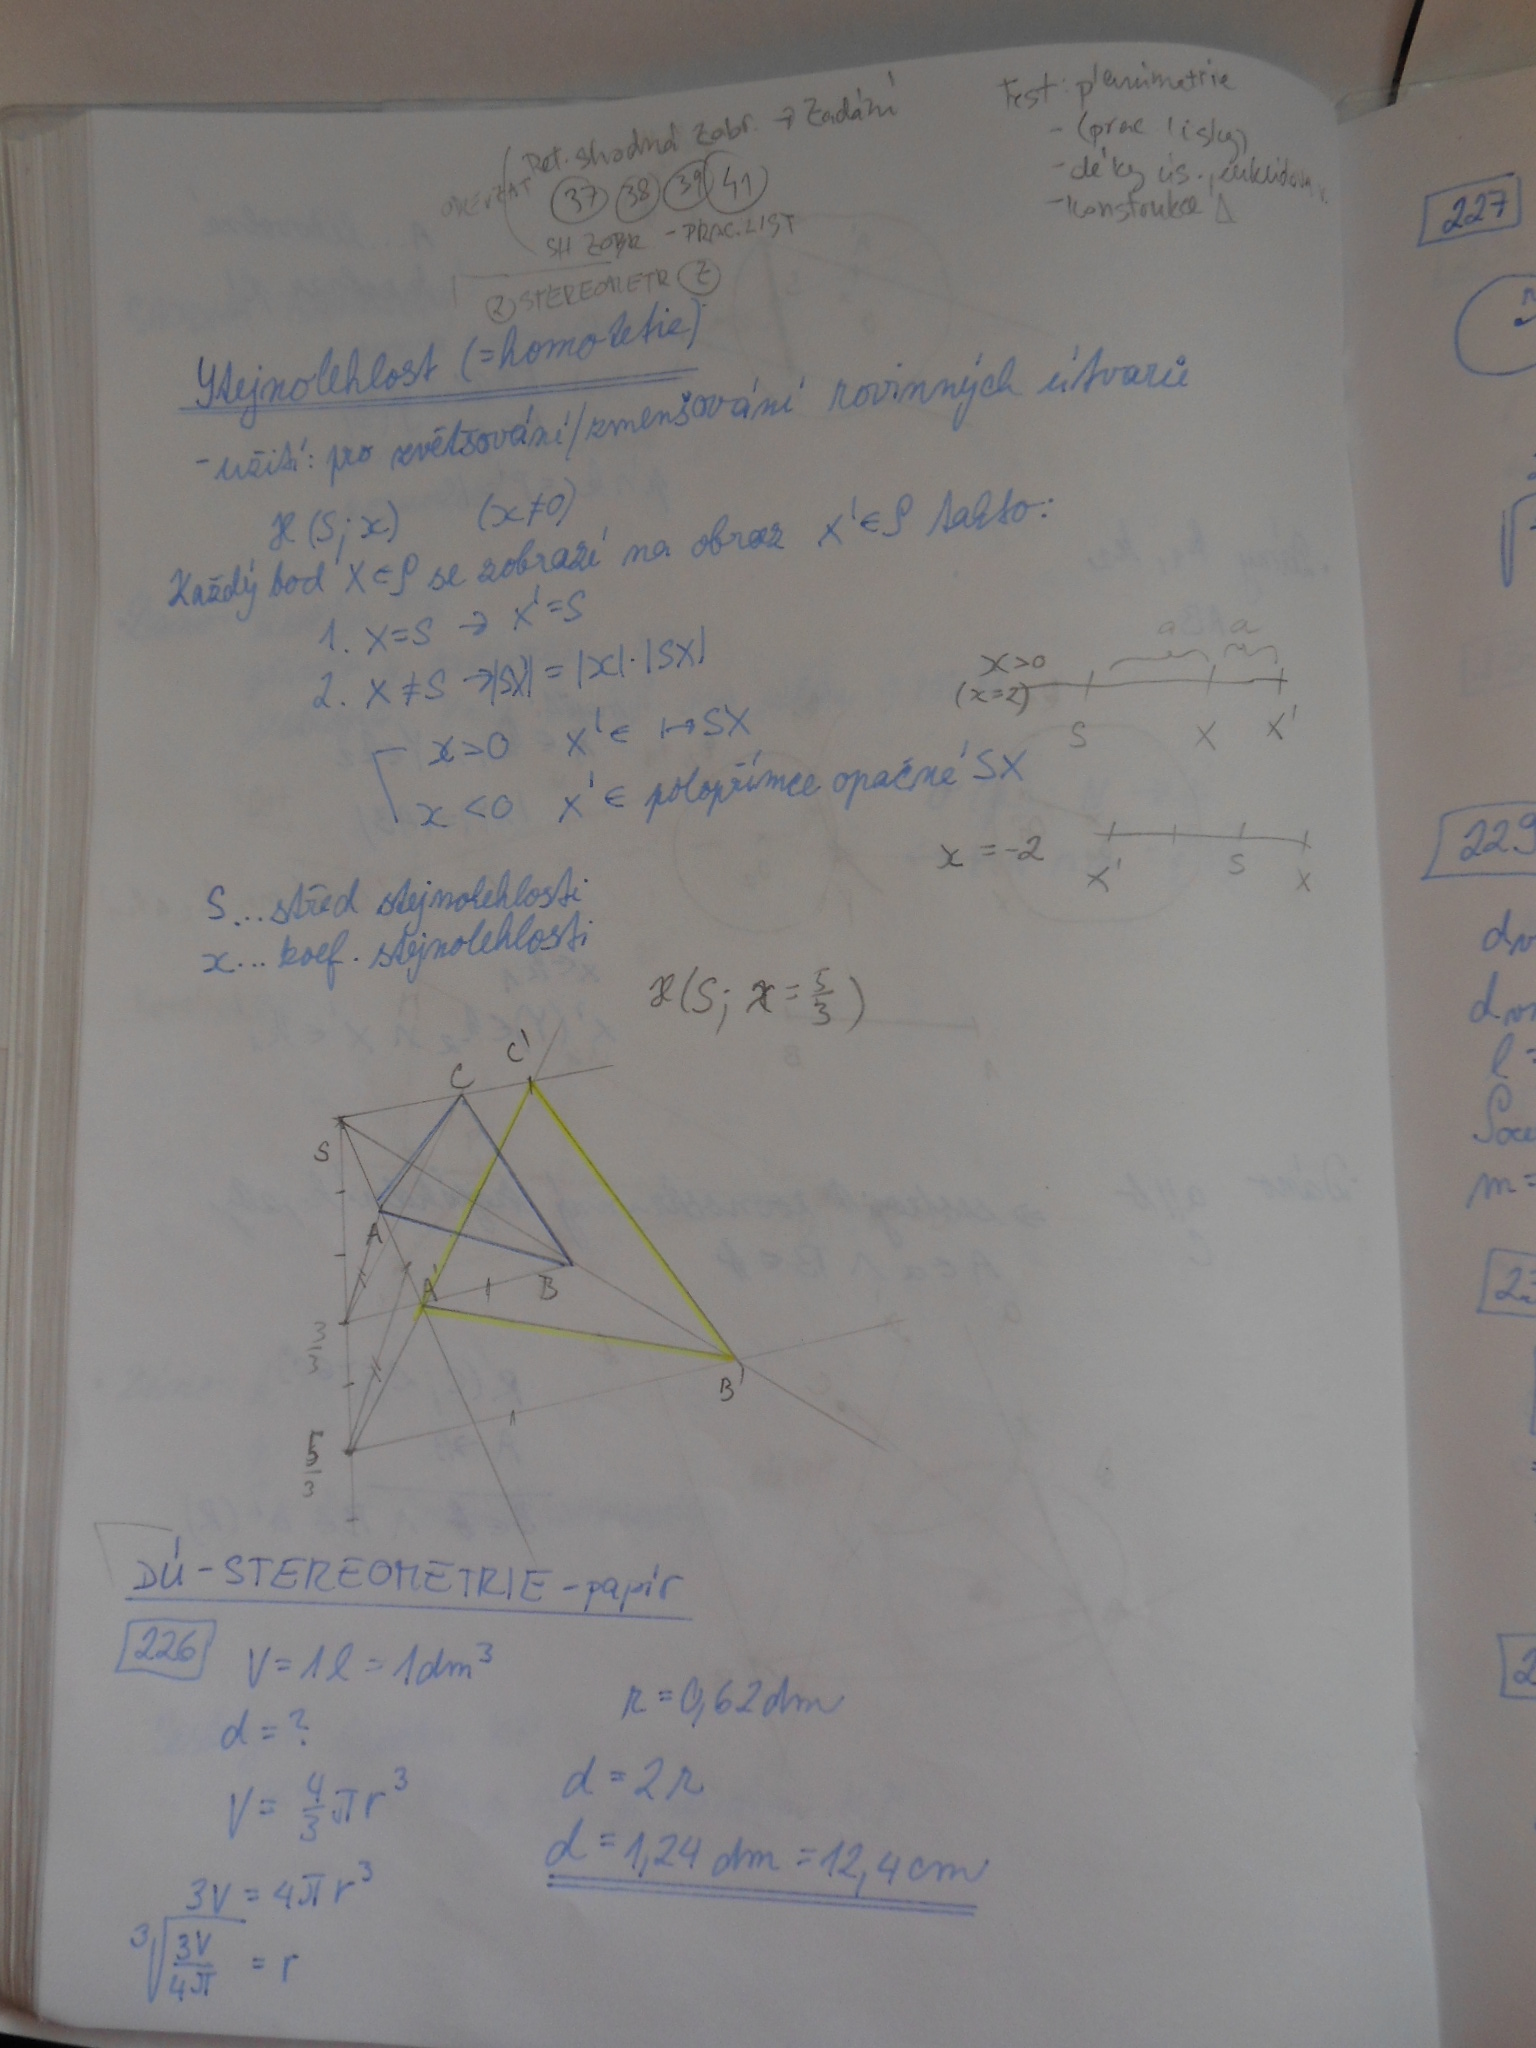 Det. shodná zobr. → Zadání
37 38 39 41
SH ZOBR - PRAC. LIST
2 STEREOMETR 2
Test: planimetrie
- (prac listy)
- délky ús.
- konstrukce Δ
Stejnolehlost (=homotetie)
- užití: pro zvětšování/zmenšování rovinných útvarů
H(S; ϰ) (ϰ≠0)
Každý bod X∈ρ se zobrazí na obraz X'∈ρ takto:
1. X=S → X'=S
2. X≠S → |SX'| = |ϰ|·|SX|
ϰ>0 X'∈ ↦SX
ϰ<0 X'∈ polopřímce opačné SX
ϰ>0
(ϰ=2)
a a
S X X'
ϰ = -2
X' S X
S... střed stejnolehlosti
ϰ... koef. stejnolehlosti
H(S; ϰ=5/3)
C C'
S
A
A' B
3/3
B'
5/3
DÚ - STEREOMETRIE - papír
226
V = 1l = 1dm³
d = ?
V = 4/3 πr³
3V = 4πr³
³√(3V/4π) = r
r = 0,62dm
d = 2r
d = 1,24 dm = 12,4cm
227
229